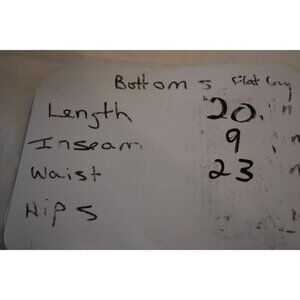 Bottoms Flat lay
Length 20"
Inseam 9
Waist 23
Hips